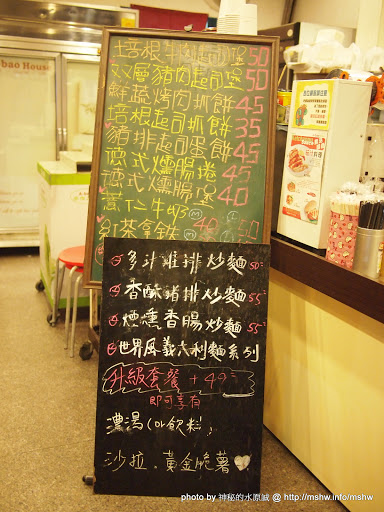 bao House
培根牛肉起司堡 50
双層豬肉起司堡 50
鮮蔬烤肉抓餅 45
培根起司抓餅 35
豬排起司蛋餅 45
德式燻腸捲 45
德式燻腸堡 40
薏仁牛奶
紅茶拿鐵 40 50
多汁雞排炒麵 50
香酥豬排炒麵 55
煙燻香腸炒麵 55
世界風義大利麵系列
升級套餐 + 49
即可享有
濃湯(or飲料)
沙拉、黃金脆薯
photo by 神秘的水原誠 @ http://mshw.info/mshw